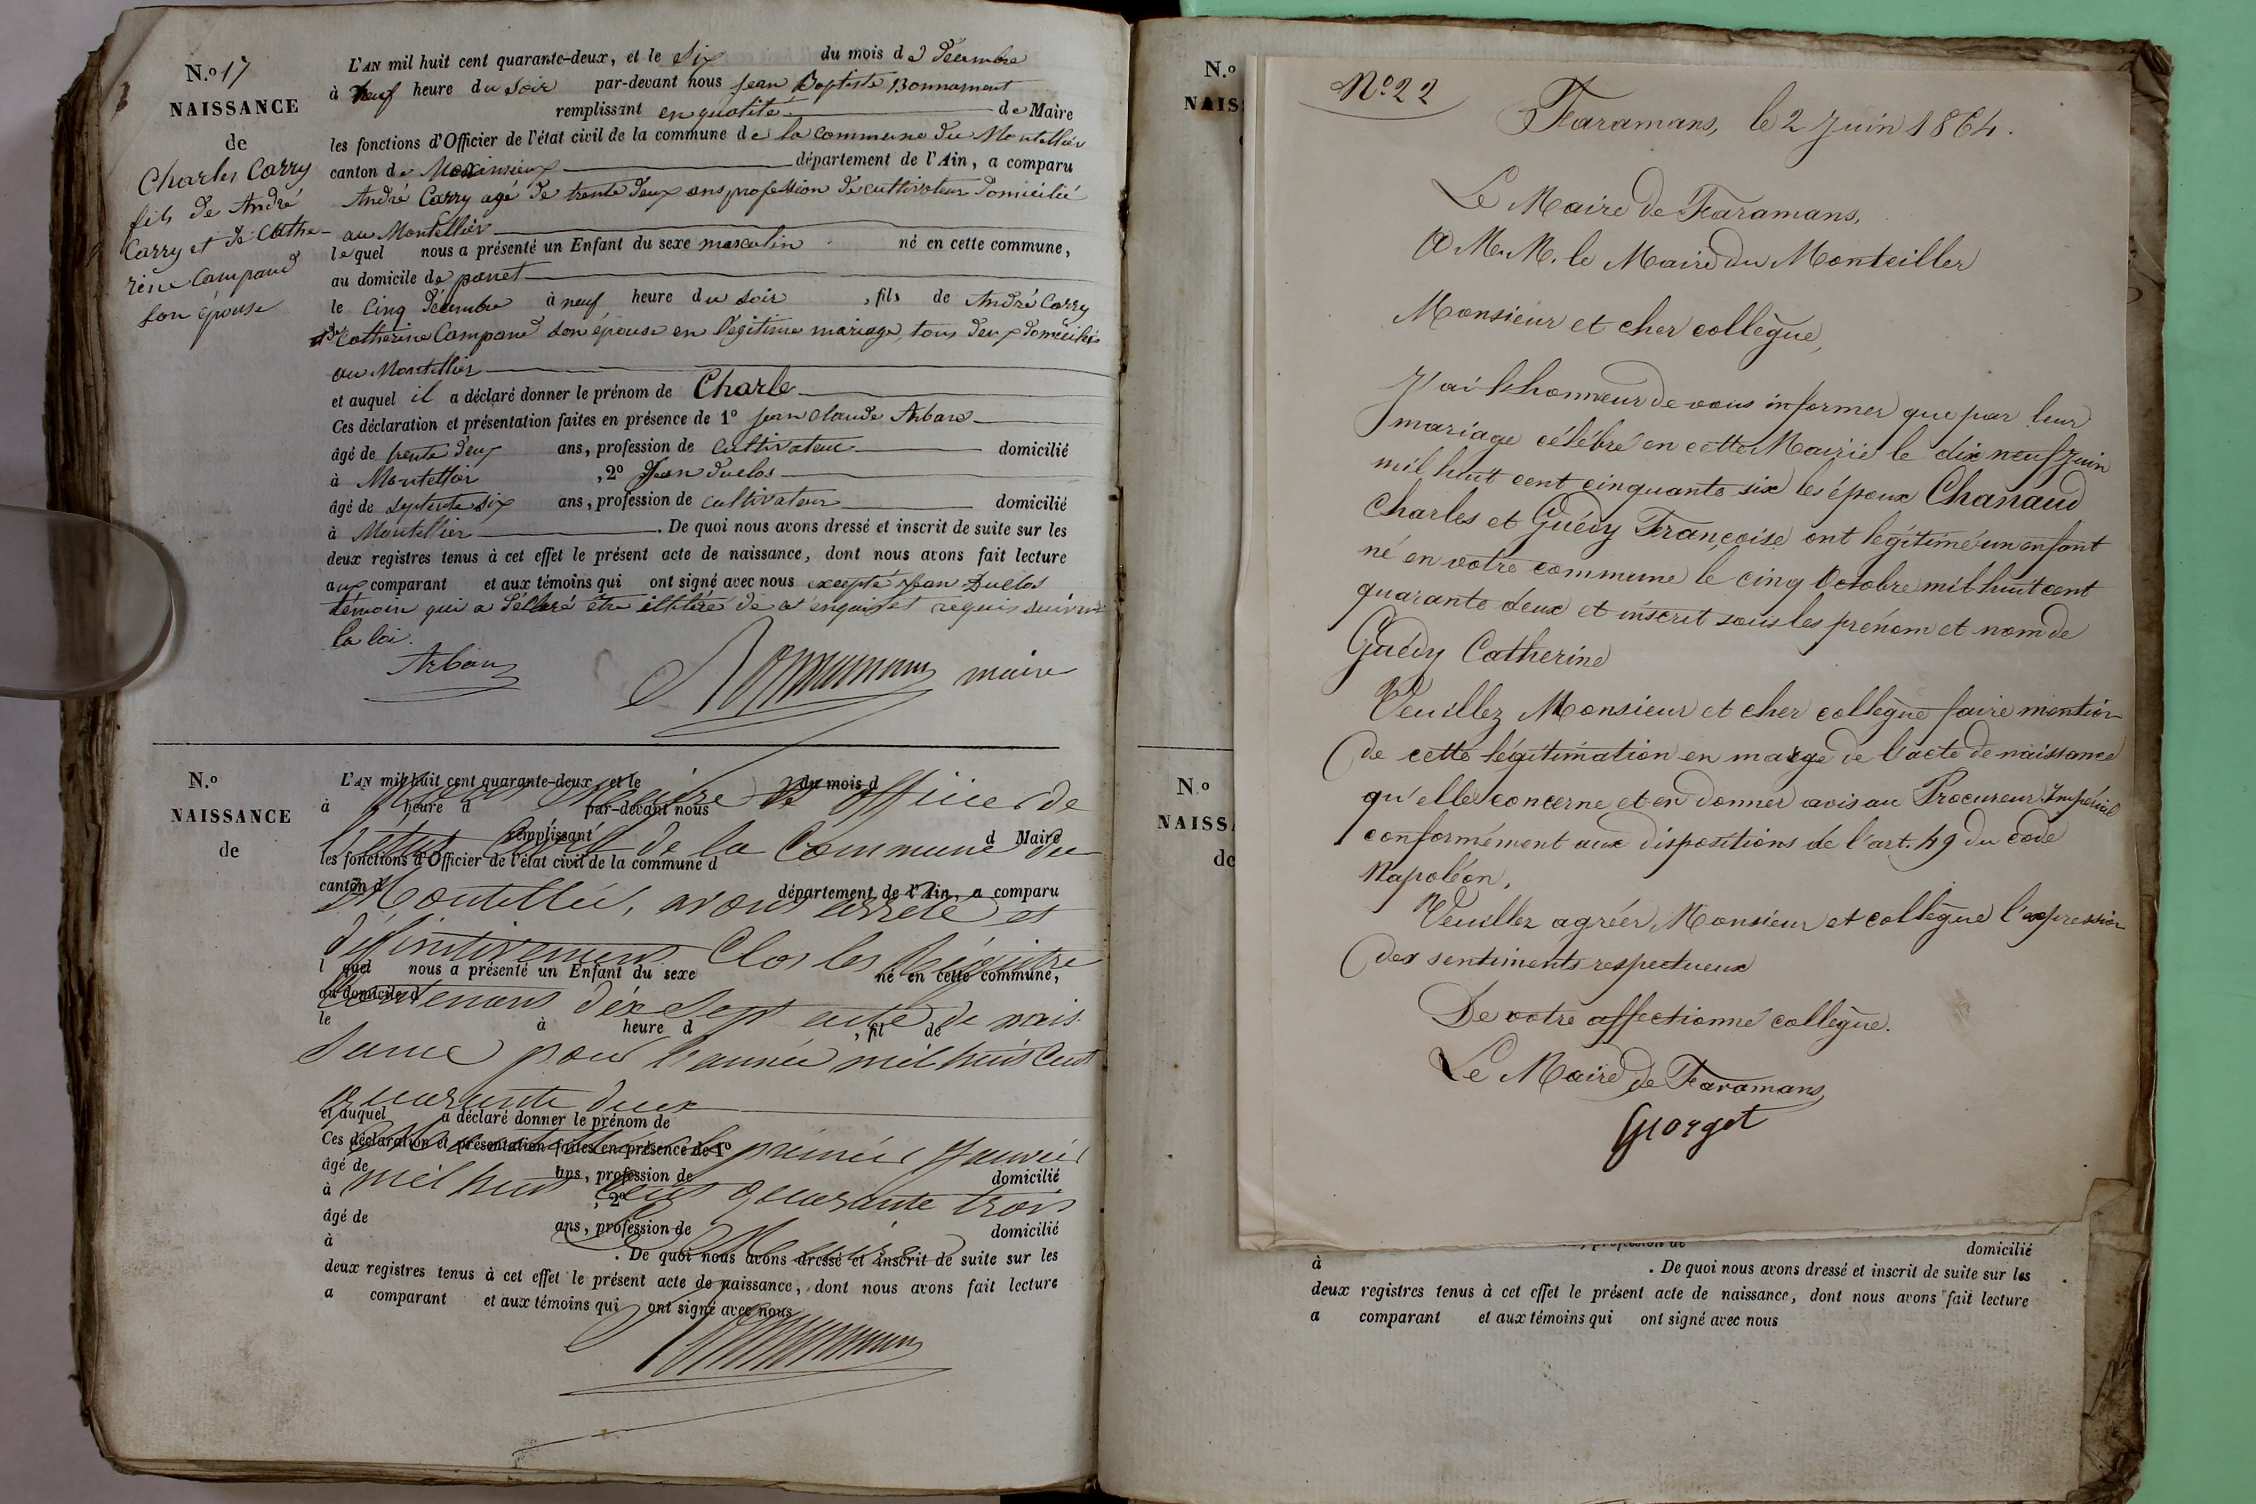 N.º 17
NAISSANCE
de
Charles Carry
fils de André
Carry et de Cathe-
rine Campand
son épouse
L'AN mil huit cent quarante-deux, et le Six du mois de Décembre
à neuf heure du Soir par-devant nous Jean Baptiste Bonnamant
remplissant en qualité de Maire
les fonctions d'Officier de l'état civil de la commune de la commune du Montellier
canton de Meximieux département de l'Ain, a comparu
André Carry agé de trente deux ans profession de cultivateur Domicilié
au Montellier
lequel nous a présenté un Enfant du sexe masculin né en cette commune,
au domicile de
le Cinq Décembre à neuf heure du soir , fils de André Carry
et de Catherine Campand son épouse en légitime mariage, tous deux domiciliés
au Montellier
et auquel il a déclaré donner le prénom de Charle
Ces déclaration et présentation faites en présence de 1º Jean Claude Arban
âgé de trente deux ans, profession de cultivateur domicilié
à Montellier , 2º Jean Duclos
âgé de septente six ans, profession de cultivateur domicilié
à Montellier . De quoi nous avons dressé et inscrit de suite sur les
deux registres tenus à cet effet le présent acte de naissance, dont nous avons fait lecture
aux comparant et aux témoins qui ont signé avec nous excepté Jean Duclos
témoin qui a déclaré être illétéré de ce enquis et requis suivant
la loi.
Arban
Bonnamant maire
N.º
NAISSANCE
de
L'AN mil huit cent quarante-deux, et le du mois d
Maire officier de
à heure d par-devant nous
remplissant d Maire
l'état Civil de la Commune du
les fonctions d'Officier de l'état civil de la commune d
canton d département de l'Ain, a comparu
Montellié, avons arrêté et
déffinitivement Clos les Régistre
l quel nous a présenté un Enfant du sexe né en cette commune,
au domicile d
Contenant dix Sept acte de nais
le à heure d , fil de
sance pour l'année mil huit cent
quarante deux
et auquel a déclaré donner le prénom de
Ces déclaration et présentation faites en présence de 1º
premier Janvier
âgé de ans, profession de domicilié
mil huit cent quarante trois
à , 2º
âgé de ans, profession de domicilié
Le Maire
à . De quoi nous avons dressé et inscrit de suite sur les
deux registres tenus à cet effet le présent acte de naissance, dont nous avons fait lecture
a comparant et aux témoins qui ont signé avec nous
Bonnamant
N.º
NAIS
N.º
NAISSA
de
Nº 22
Faramans, le 2 Juin 1864.
Le Maire de Faramans,
A M. le Maire du Monteiller
Monsieur et cher collègue,
J'ai l'honneur de vous informer que par leur
mariage célébré en cette Mairie le dix neuf Juin
mil huit cent cinquante six les époux Chanaud
Charles et Guédy Françoise ont légitimé un enfant
né en votre commune le cinq Octobre mil huit cent
quarante deux et inscrit sous les prénom et nom de
Guédy Catherine
Veuillez Monsieur et cher collègue faire mention
de cette légitimation en marge de l'acte de naissance
qu'elle concerne et en donner avis au Procureur Impérial
conformément aux dispositions de l'art. 49 du code
Napoléon.
Veuillez agréer Monsieur et collègue l'expression
des sentiments respectueux
De votre affectionné collègue.
Le Maire de Faramans
Giorget
, profession de domicilié
à . De quoi nous avons dressé et inscrit de suite sur les
deux registres tenus à cet effet le présent acte de naissance, dont nous avons fait lecture
a comparant et aux témoins qui ont signé avec nous